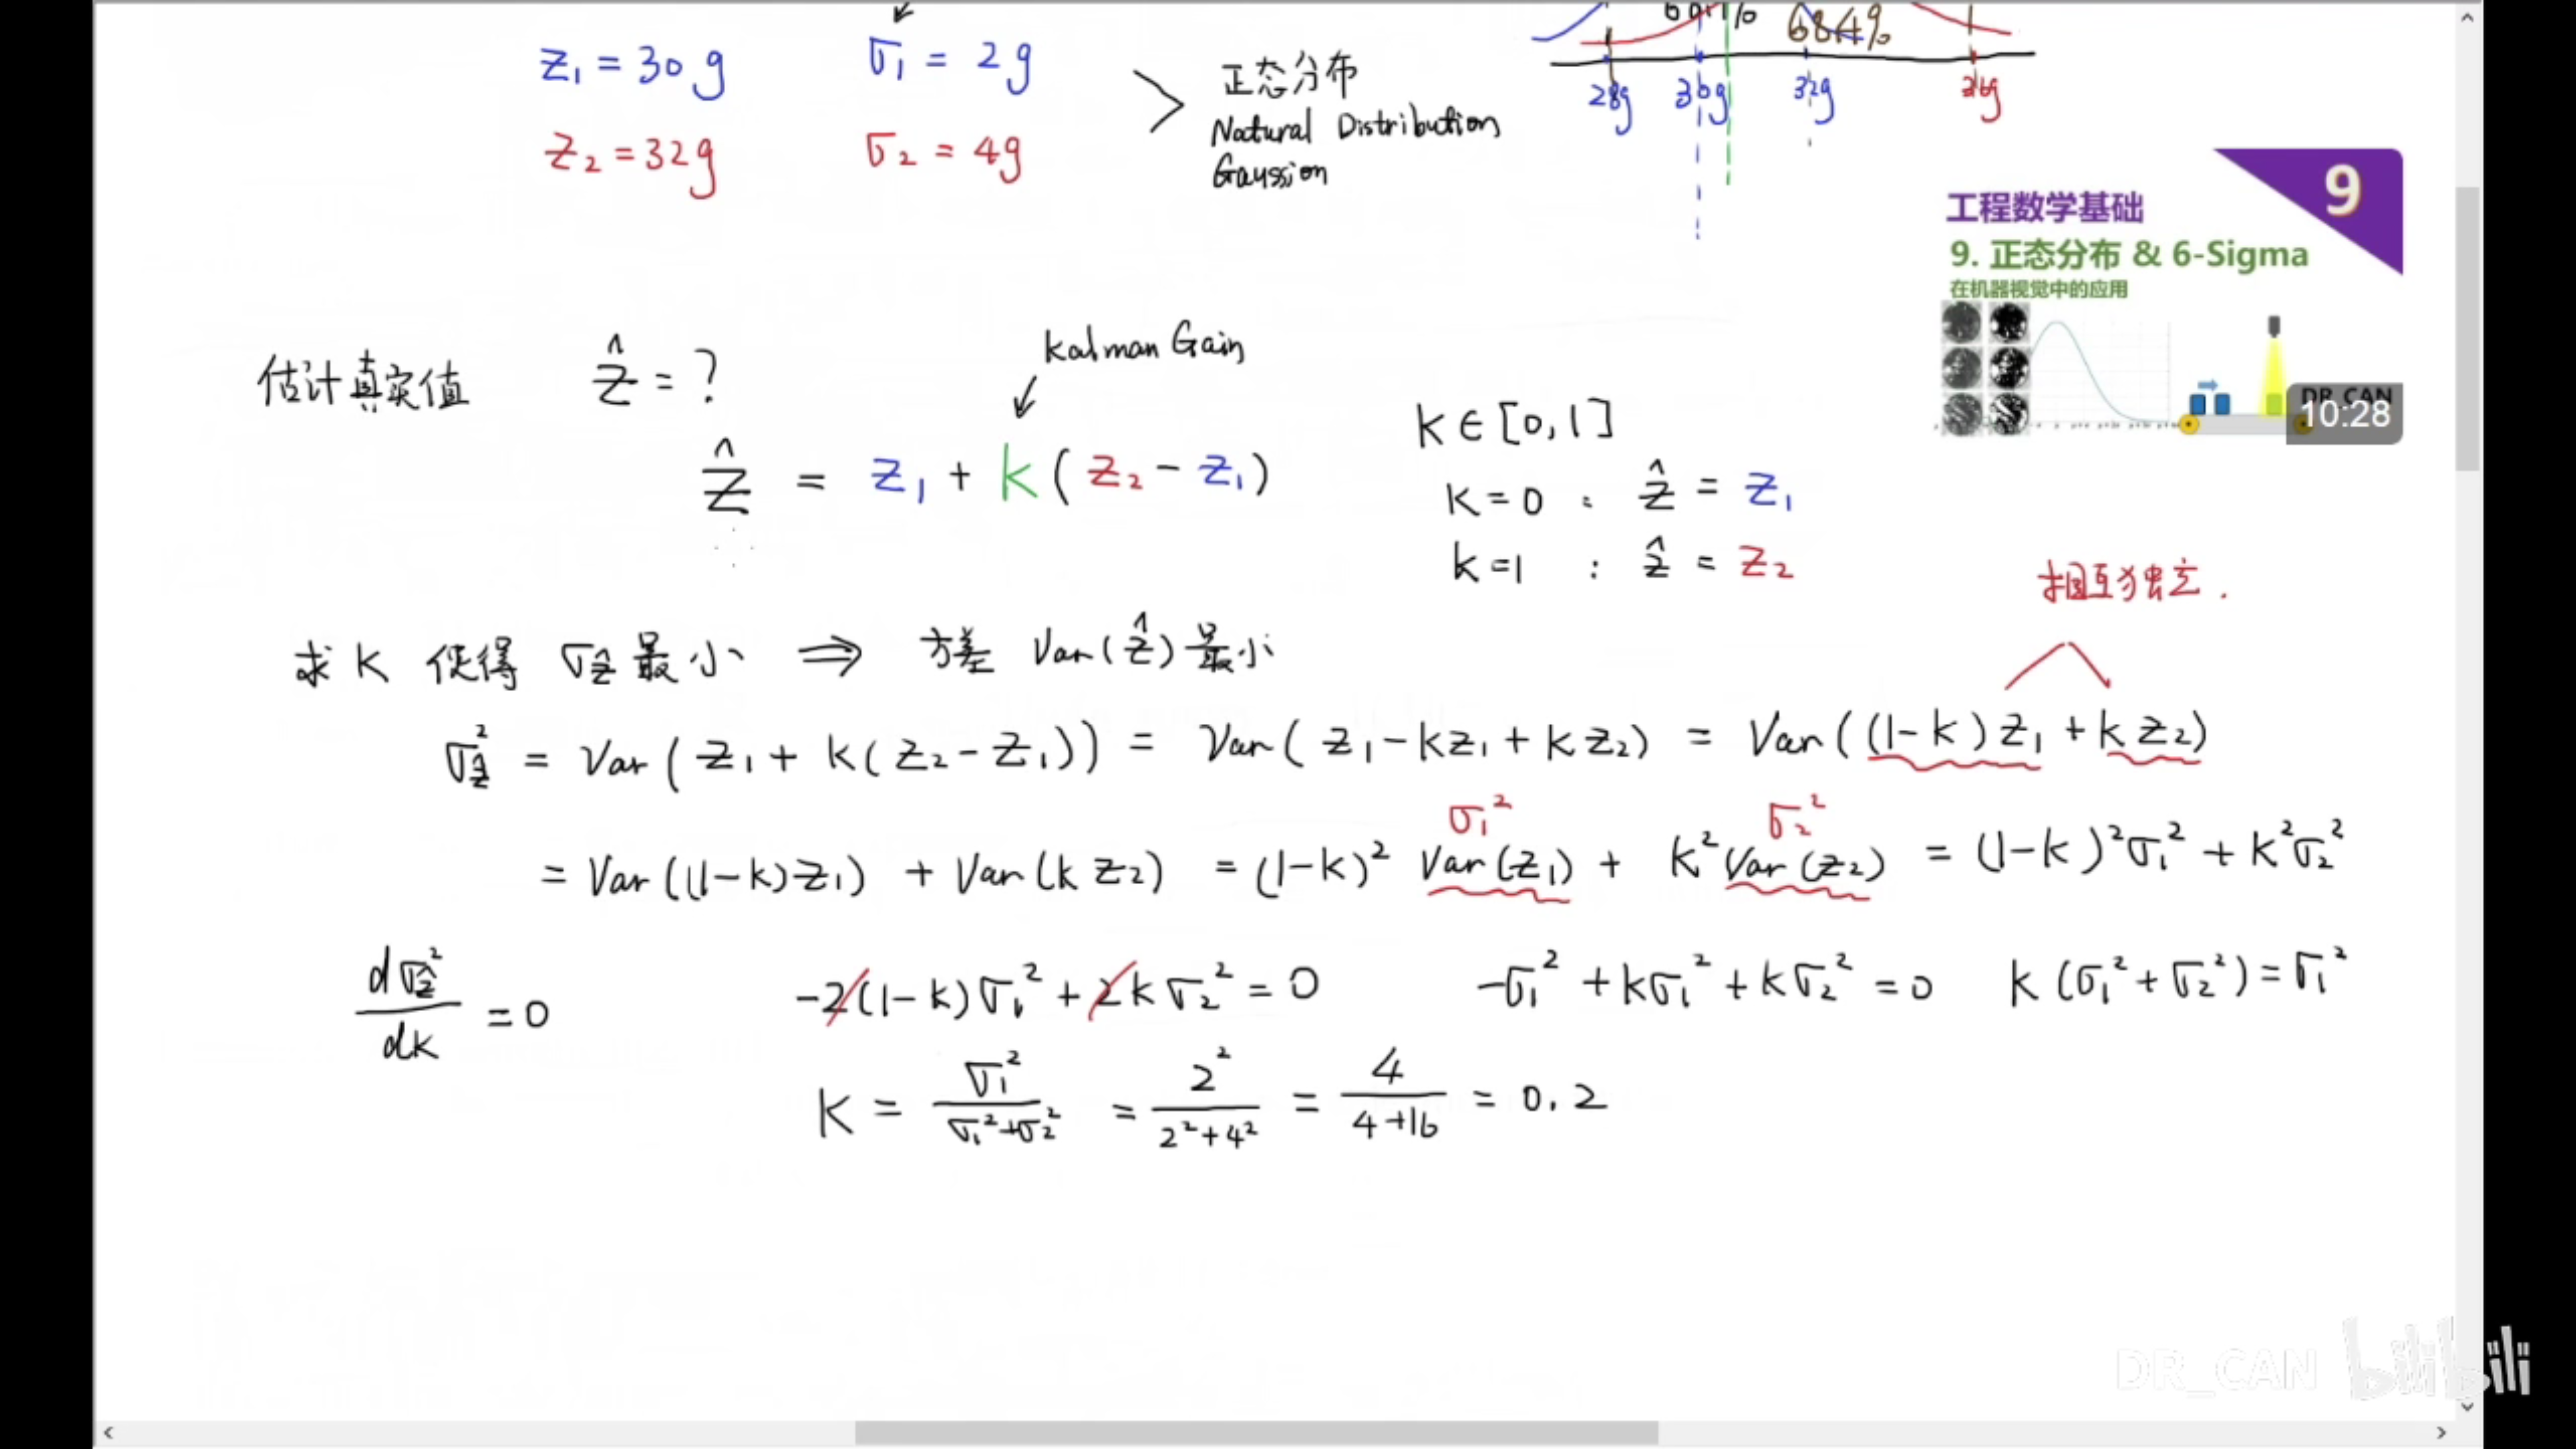 z₁ = 30g σ₁ = 2g
z₂ = 32g σ₂ = 4g
正态分布
Natural Distribution
Gaussion
68.4%
28g 30g 32g 36g
9
工程数学基础
9. 正态分布 & 6-Sigma
在机器视觉中的应用
DR_CAN
10:28
估计真实值 ẑ = ?
Kalman Gain
ẑ = z₁ + k(z₂ - z₁)
k ∈ [0,1]
k = 0 : ẑ = z₁
k = 1 : ẑ = z₂
相互独立.
求 k 使得 σẑ 最小 ⇒ 方差 Var(ẑ) 最小
σẑ² = Var(z₁ + k(z₂ - z₁)) = Var(z₁ - kz₁ + kz₂) = Var((1-k)z₁ + kz₂)
σ₁² σ₂²
= Var((1-k)z₁) + Var(kz₂) = (1-k)² Var(z₁) + k² Var(z₂) = (1-k)²σ₁² + k²σ₂²
dσẑ²/dk = 0 -2(1-k)σ₁² + 2kσ₂² = 0 -σ₁² + kσ₁² + kσ₂² = 0 k(σ₁² + σ₂²) = σ₁²
k = σ₁²/(σ₁²+σ₂²) = 2²/(2²+4²) = 4/(4+16) = 0.2
DR_CAN bilibili